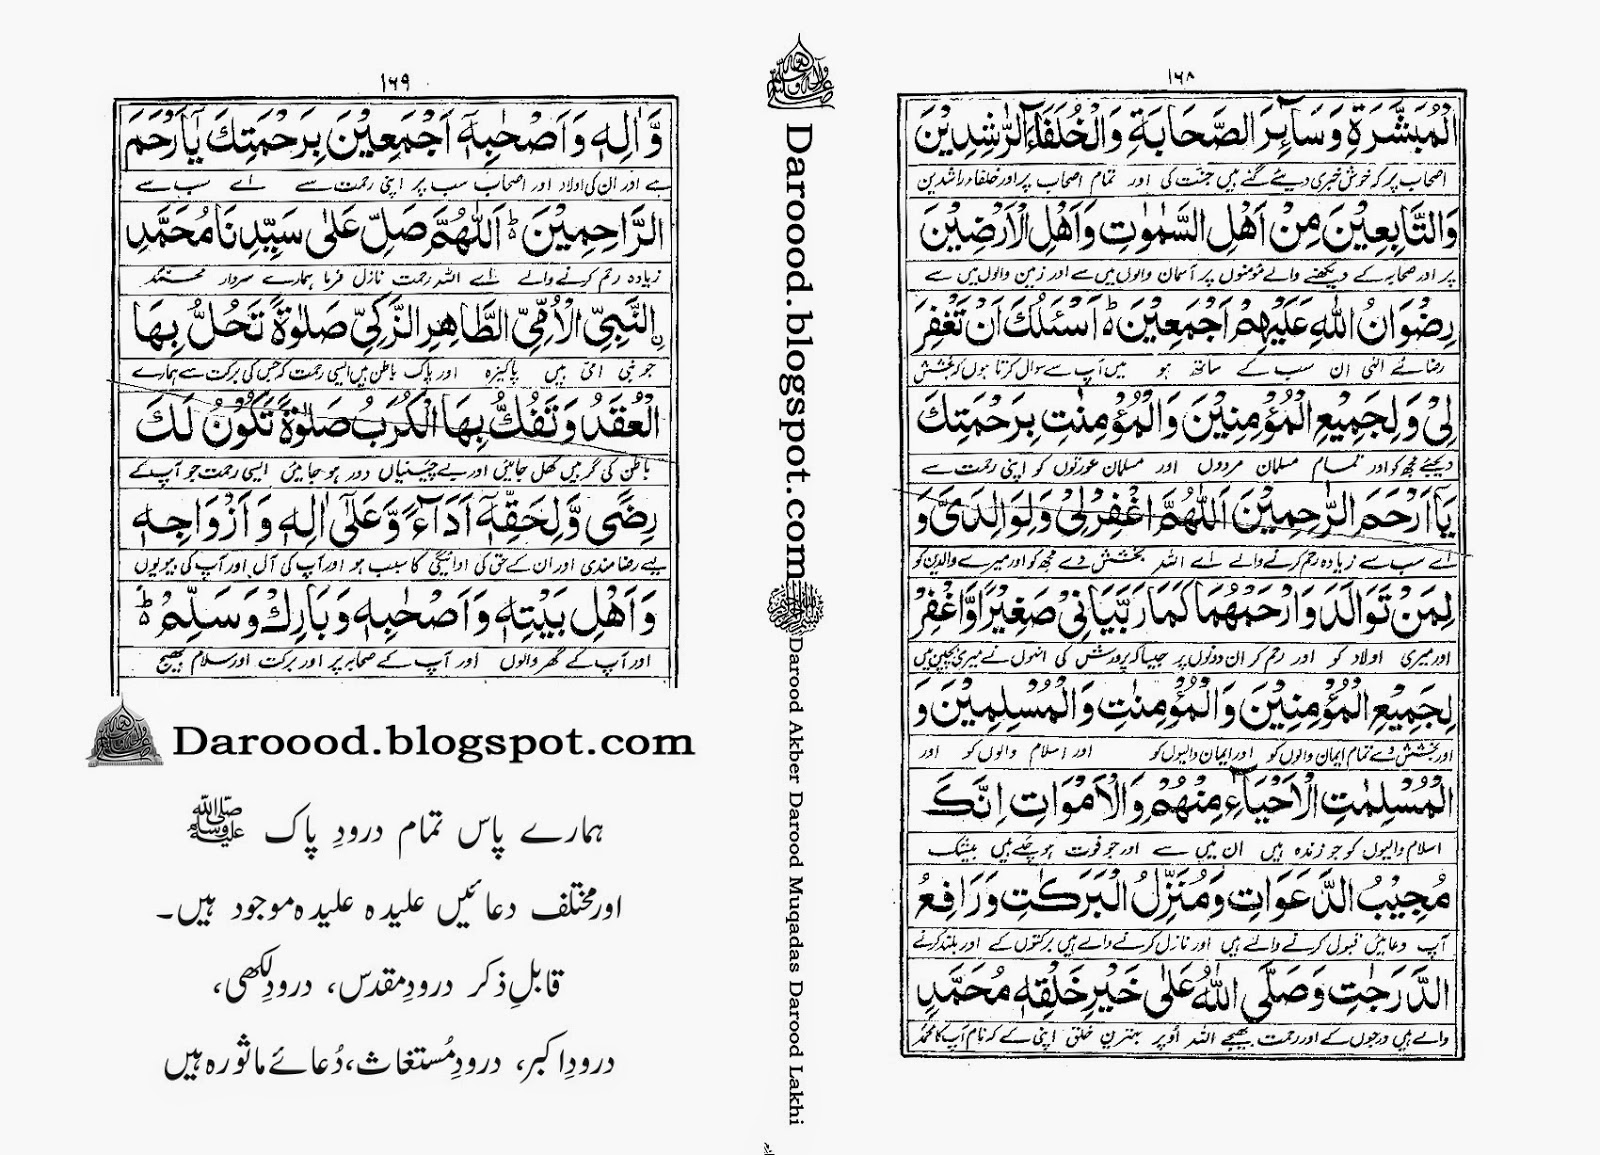 ١٦٨
الْمُبَشَّرَةِ وَسَآئِرَ الصَّحَابَةِ وَالْخُلَفَآءَ الرّٰشِدِيْنَ
اصحاب پر کہ خوش خبری دیئے گئے ہیں جنت کی اور تمام اصحاب پر اور خلفاء راشدین
وَالتَّابِعِيْنَ مِنْ اَهْلِ السَّمٰوٰتِ وَاَهْلِ الْاَرْضِيْنَ
پر اور صحابہ کے دیکھنے والے مومنوں پر آسمان والوں میں سے اور زمین والوں میں سے
رِضْوَانُ اللّٰهِ عَلَيْهِمْ اَجْمَعِيْنَ ط اَسْئَلُكَ اَنْ تَغْفِرَ
رضائے الٰہی ان سب کے ساتھ ہو میں آپ سے سوال کرتا ہوں کہ بخشش
لِيْ وَلِجَمِيْعِ الْمُؤْمِنِيْنَ وَالْمُؤْمِنٰتِ بِرَحْمَتِكَ
دیجئے مجھ کو اور تمام مسلمان مردوں اور مسلمان عورتوں کو اپنی رحمت سے
يَآ اَرْحَمَ الرّٰحِمِيْنَ اَللّٰهُمَّ اغْفِرْلِيْ وَلِوَالِدَيَّ وَ
اے سب سے زیادہ رحم کرنے والے اے اللہ بخشش دے مجھ کو اور میرے والدین کو
لِمَنْ تَوَالَدَ وَارْحَمْهُمَا كَمَا رَبَّيَانِيْ صَغِيْرًا وَّاغْفِرْ
اور میری اولاد کو اور رحم کر ان دونوں پر جیسا کہ پرورش کی انہوں نے میری بچپن میں
لِجَمِيْعِ الْمُؤْمِنِيْنَ وَالْمُؤْمِنٰتِ وَالْمُسْلِمِيْنَ وَ
اور بخشش دے تمام ایمان والوں کو اور ایمان والیوں کو اور اسلام والوں کو اور
الْمُسْلِمٰتِ الْاَحْيَآءِ مِنْهُمْ وَالْاَمْوَاتِ اِنَّكَ
اسلام والیوں کو جو زندہ ہیں ان میں سے اور جو فوت ہو چکے ہیں بیشک
مُجِيْبُ الدَّعَوَاتِ وَمُنَزِّلُ الْبَرَكٰتِ وَرَافِعُ
آپ دعائیں قبول کرنے والے ہیں اور نازل کرنے والے ہیں برکتوں کے اور بلند کرنے
الدَّرَجٰتِ وَصَلَّى اللّٰهُ عَلٰى خَيْرِ خَلْقِهٖ مُحَمَّدٍ
والے ہیں درجوں کے اور رحمت بھیجے اللہ اوپر بہترین خلق اپنی کے کہ نام آپ کا محمدؐ
١٦٩
وَّاٰلِهٖ وَاَصْحٰبِهٖٓ اَجْمَعِيْنَ بِرَحْمَتِكَ يَآ اَرْحَمَ
ہے اور ان کی اولاد اور اصحاب سب پر اپنی رحمت سے اے سب سے
الرَّاحِمِيْنَ ط اَللّٰهُمَّ صَلِّ عَلٰى سَيِّدِنَا مُحَمَّدِ
زیادہ رحم کرنے والے اے اللہ رحمت نازل فرما ہمارے سردار محمدؐ
نِالنَّبِيِّ الْاُمِّيِّ الطَّاهِرِ الزَّكِيِّ صَلٰوةً تَحُلُّ بِهَا
جو نبی امی ہیں پاکیزہ اور پاک باطن ہیں ایسی رحمت کہ جس کی برکت سے ہمارے
الْعُقَدُ وَتَفُكُّ بِهَا الْكُرَبُ صَلٰوةً تَكُوْنُ لَكَ
باطن کی گرہیں کھل جائیں اور بے چینیاں دور ہو جائیں ایسی رحمت جو آپ کے
رِضًى وَّلِحَقِّهٖٓ اَدَآءً وَّعَلٰٓى اٰلِهٖ وَاَزْوَاجِهٖ
لیے رضا مندی اور ان کے حق کی ادائیگی کا سبب ہو اور آپ کی آل اور آپ کی بیویوں
وَاَهْلِ بَيْتِهٖ وَاَصْحٰبِهٖ وَبَارِكْ وَسَلِّمْ ط
اور آپ کے گھر والوں اور آپ کے صحابہ پر اور برکت اور سلام بھیج
Daroood.blogspot.com
ہمارے پاس تمام درودِ پاک ﷺ
اور مختلف دعائیں علیدہ علیدہ موجود ہیں۔
قابلِ ذکر درودِ مقدس، درودِ لکھی،
درودِ اکبر، درودِ مُستغاث، دُعائے ماثورہ ہیں
Daroood.blogspot.com
Darood Akber Darood Muqadas Darood Lakhi